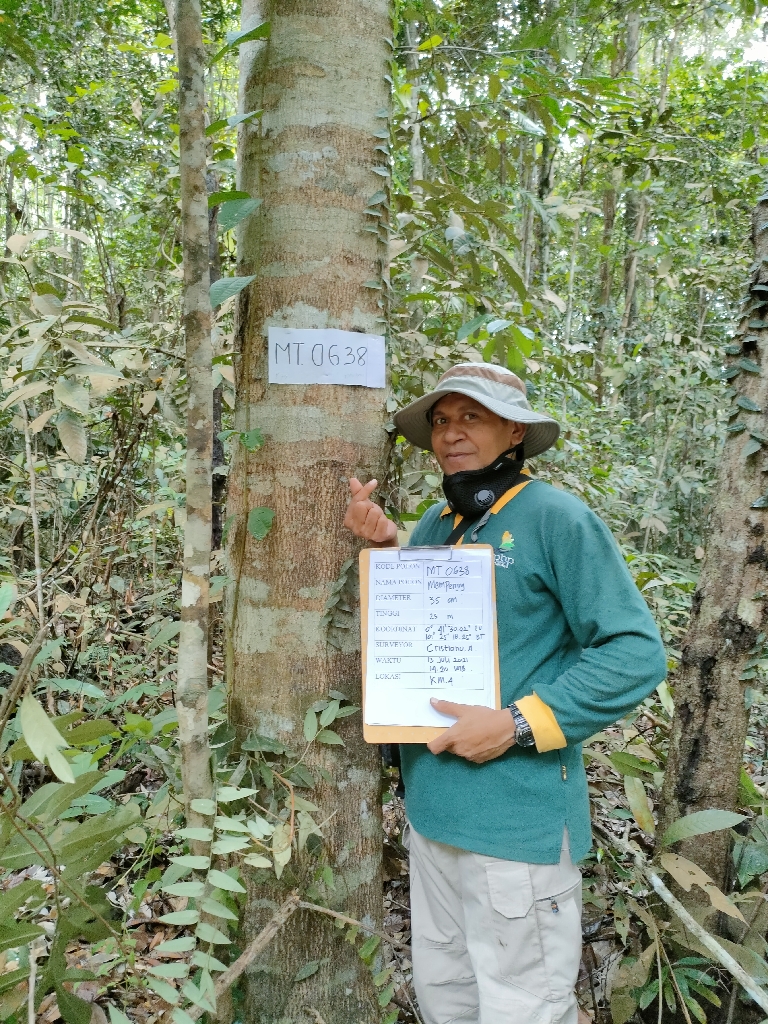 MT. 0638
KODE POHON MT 0638
NAMA POHON Mempening
DIAMETER 35 cm
TINGGI 25 m
KOORDINAT
SURVEYOR Cristianu. A
WAKTU 13 Juli 2021
14.20 WIB
LOKASI KM.4
php